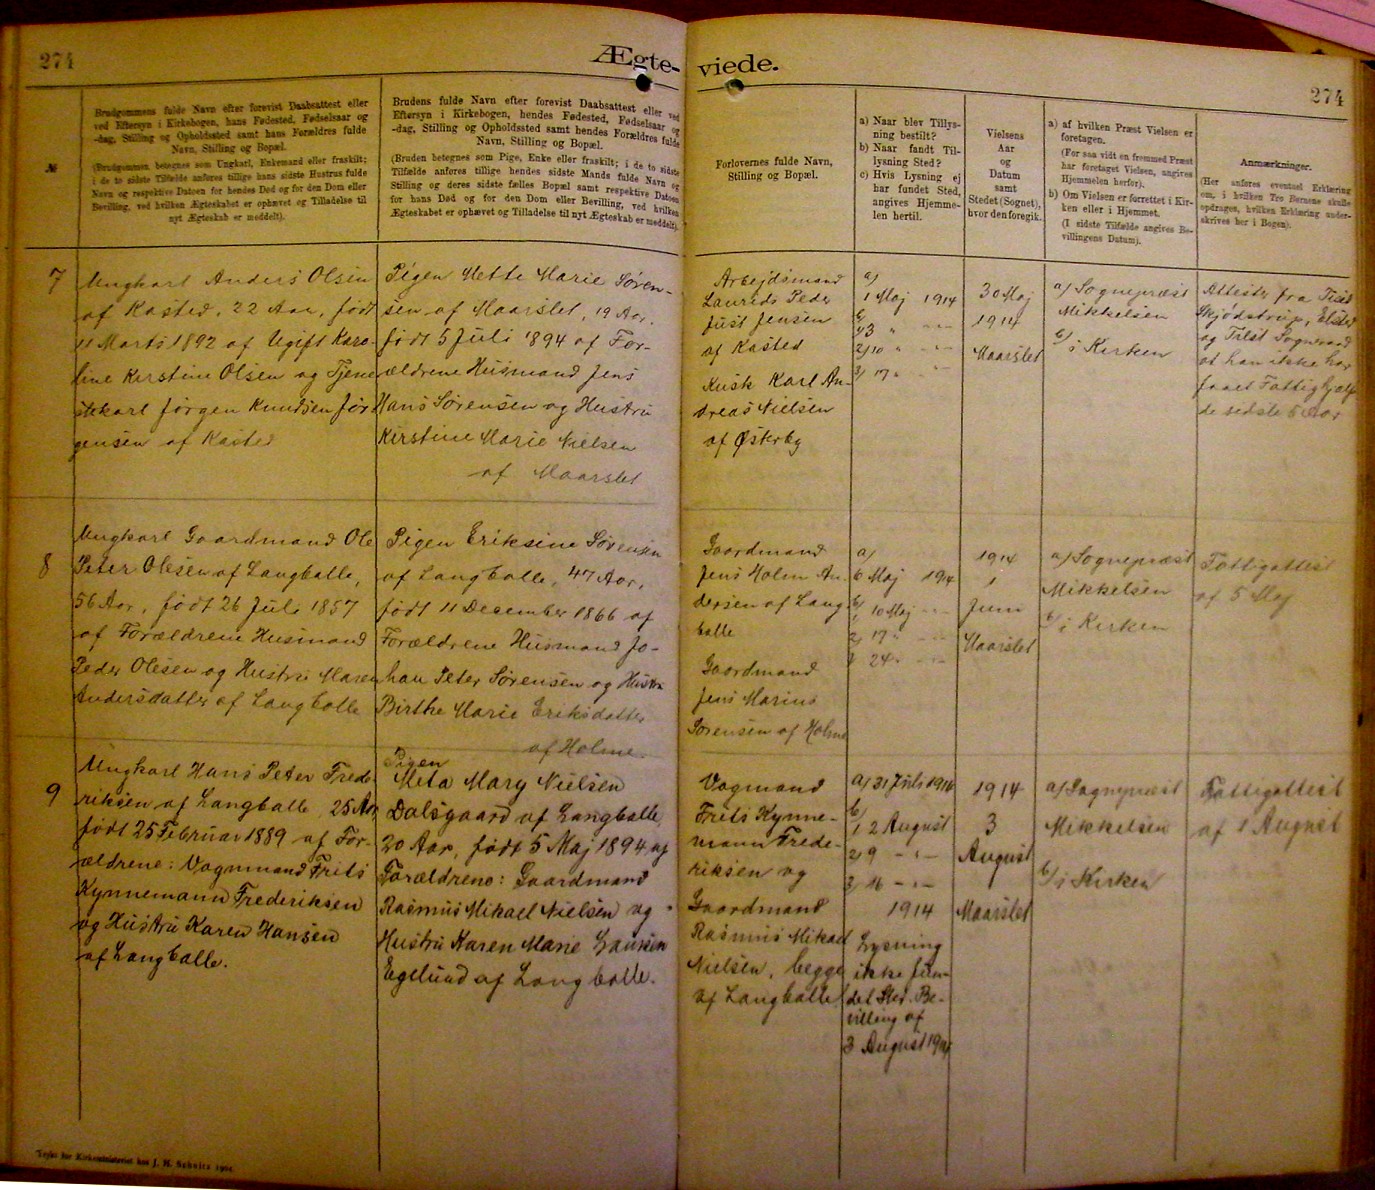 274
Ægte-
viede.
274
№
Brudgommens fulde Navn efter forevist Daabsattest eller
ved Eftersyn i Kirkebogen, hans Fødested, Fødselsaar og
-dag, Stilling og Opholdssted samt hans Forældres fulde
Navn, Stilling og Bopæl.
(Brudgommen betegnes som Ungkarl, Enkemand eller fraskilt;
i de to sidste Tilfælde anføres tillige hans sidste Hustrus fulde
Navn og respektive Datoen for hendes Død og for den Dom eller
Bevilling, ved hvilken Ægteskabet er ophævet og Tilladelse til
nyt Ægteskab er meddelt).
Brudens fulde Navn efter forevist Daabsattest eller ved
Eftersyn i Kirkebogen, hendes Fødested, Fødselsaar og
-dag, Stilling og Opholdssted samt hendes Forældres fulde
Navn, Stilling og Bopæl.
(Bruden betegnes som Pige, Enke eller fraskilt; i de to sidste
Tilfælde anføres tillige hendes sidste Mands fulde Navn og
Stilling og deres sidste fælles Bopæl samt respektive Datoen
for hans Død og for den Dom eller Bevilling, ved hvilken
Ægteskabet er ophævet og Tilladelse til nyt Ægteskab er meddelt).
Forlovernes fulde Navn,
Stilling og Bopæl.
a) Naar blev Tillys-
ning bestilt?
b) Naar fandt Til-
lysning Sted?
c) Hvis Lysning ej
har fundet Sted,
angives Hjemme-
len hertil.
Vielsens
Aar
og
Datum
samt
Stedet (Sognet),
hvor den foregik.
a) af hvilken Præst Vielsen er
foretagen.
(For saa vidt en fremmed Præst
har foretaget Vielsen, angives
Hjemmelen herfor).
b) Om Vielsen er forrettet i Kir-
ken eller i Hjemmet.
(I sidste Tilfælde angives Be-
villingens Datum).
Anmærkninger.
(Her anføres eventuel Erklæring
om, i hvilken Tro Børnene skulle
opdrages, hvilken Erklæring under-
skrives her i Bogen).
7
Ungkarl Anders Olsen
af Kasted, 22 Aar, født
11 Marts 1892 af Ugift Karo-
line Kirstine Olsen og Tjene
stekarl Jørgen Knudsen Jør
gensen af Kasted
Pigen Mette Marie Søren-
sen af Maarslet, 19 Aar,
født 5 Juli 1894 af For-
ældrene Husmand Jens
Hans Sørensen og Hustru
Kirstine Marie Nielsen
af Maarslet
Arbejdsmand
Laurids Peder
Just Jensen
af Kasted
Kusk Karl An-
dreas Nielsen
af Østerby
a)
1 Maj 1914
b)
1/3 " - " -
2/10 " - " -
3/17 " - " -
30 Maj
1914
Maarslet
a) Sognepræst
Mikkelsen
b) i Kirken
Attester fra Tilst
Skjødstrup, Elsted
og Tilst Sogneraad
at han ikke har
faaet Fattighjælp
de sidste 5 Aar
8
Ungkarl Gaardmand Ole
Peter Olesen af Langballe,
56 Aar, født 26 Juli 1857
af Forældrene Husmand
Peder Olesen og Hustru Maren
Andersdatter af Langballe
Pigen Eriksine Sørensen
af Langballe, 47 Aar,
født 11 December 1866 af
Forældrene Husmand Jo-
han Peter Sørensen og Hustru
Birthe Marie Eriksdatter
af Holme.
Gaardmand
Jens Holm An-
dersen af Lang
balle
Gaardmand
Jens Marius
Sørensen af Holme
a)
6 Maj 1914
b)
1/10 Maj - " -
2/17 " - " -
3/24 " - " -
1914
1
Juni
Maarslet
a) Sognepræst
Mikkelsen
b) i Kirken
Fattigattest
af 5 Maj
9
Ungkarl Hans Peter Frede-
riksen af Langballe, 25 Aar,
født 25 Februar 1889 af For-
ældrene: Vognmand Frits
Kynnemann Frederiksen
og Hustru Karen Hansen
af Langballe.
Pigen
Meta Mary Nielsen
Dalsgaard af Langballe,
20 Aar, født 5 Maj 1894 af
Forældrene: Gaardmand
Rasmus Mikael Nielsen og
Hustru Karen Marie Laursen
Egelund af Langballe.
Vogmand
Frits Kynne-
mann Frede-
riksen og
Gaardmand
Rasmus Mikael
Nielsen, begge
af Langballe
a) 31 Juli 1914
b)
1/2 August
2/9 - " -
3/16 - " -
1914
Lysning
ikke fun-
det Sted. Be-
villing af
3 August 1914
1914
3
August
Maarslet
a) Sognepræst
Mikkelsen
b) i Kirken
Fattigattest
af 1 August
Trykt for Kirkeministeriet hos J. H. Schultz